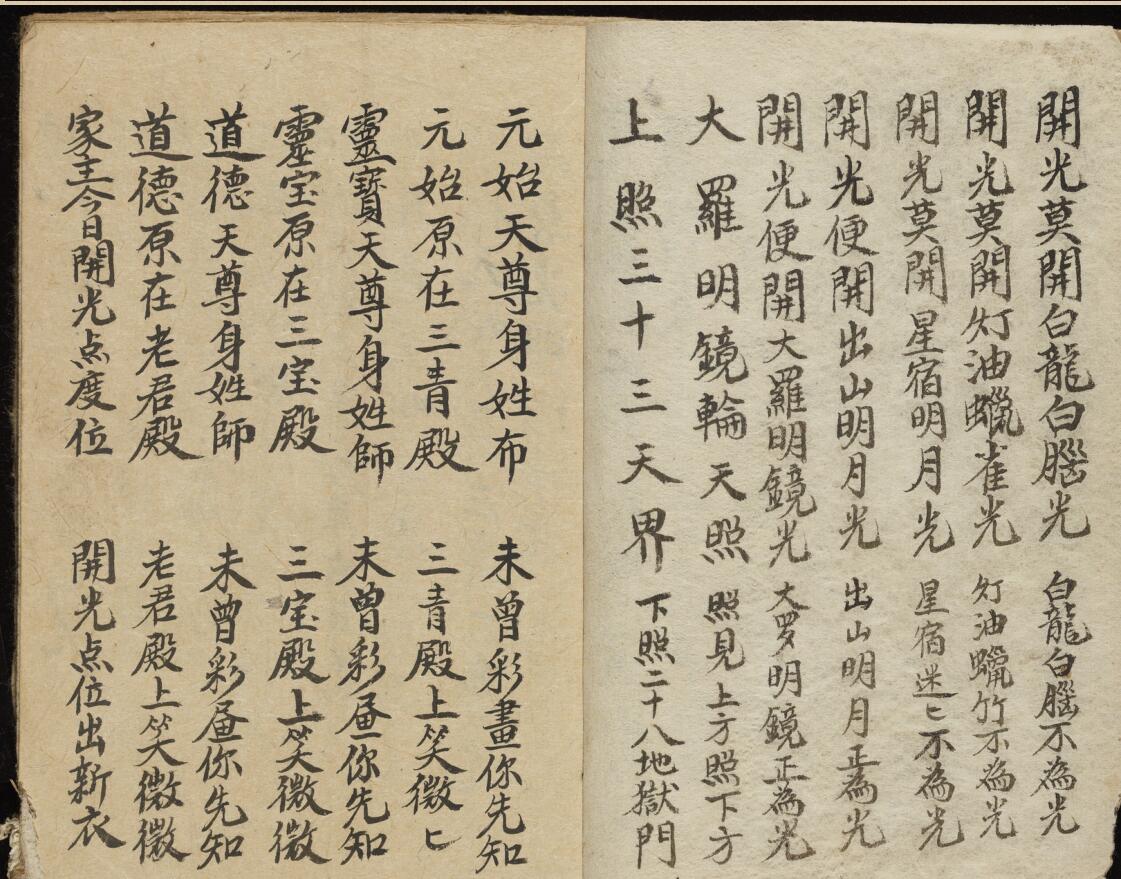 開光莫開白龍白腦光 白龍白腦不為光
開光莫開灯油蠟雀光 灯油蠟竹不為光
開光莫開星宿明月光 星宿迷〻不為光
開光便開出山明月光 出山明月正為光
開光便開大羅明鏡光 大罗明鏡正為光
大羅明鏡輪天照 照見上方照下方
上照三十三天界 下照二十八地獄門
元始天尊身姓布 未曾彩畫你先知
元始原在三青殿 三青殿上笑微〻
靈寶天尊身姓師 末曾彩昼你先知
靈宝原在三宝殿 三宝殿上笑微微
道德天尊身姓師 未曾彩昼你先知
道德原在老君殿 老君殿上笑微微
家主今日開光点度位 開光点位出新衣